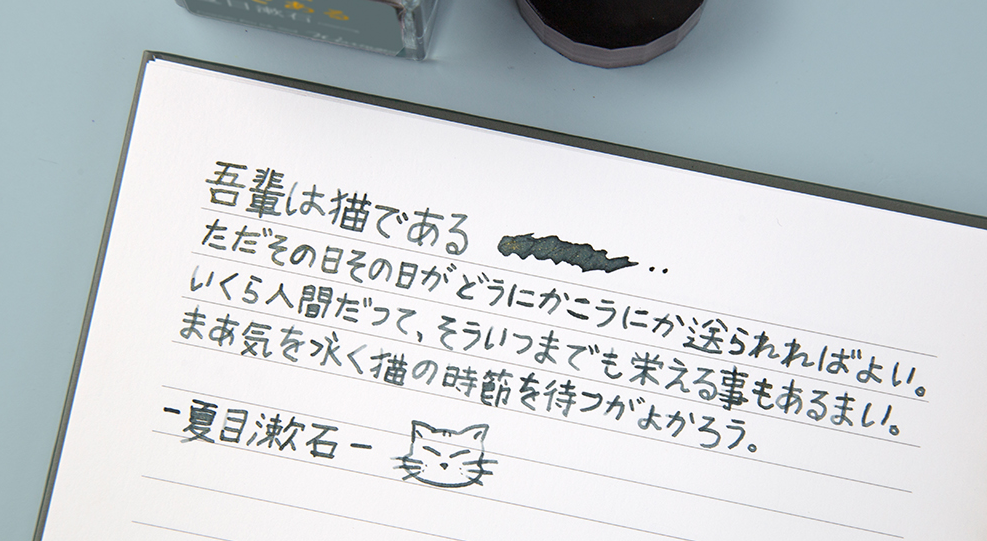 ある
夏目漱石
吾輩は猫である ..
ただその日その日がどうにかこうにか送られればよい。
いくら人間だって、そういつまでも栄える事もあるまい。
まあ気を永く猫の時節を待つがよかろう。
-夏目漱石-